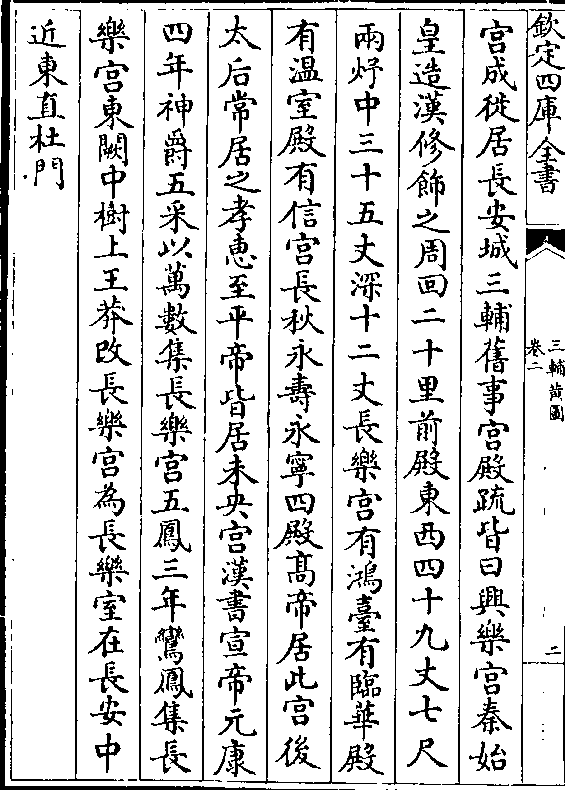 欽定四庫全書
三輔黃圖
卷二
二
宮成徙居長安城三輔舊事宮殿疏皆曰興樂宮秦始
皇造漢修飾之周回二十里前殿東西四十九丈七尺
兩杼中三十五丈深十二丈長樂宮有鴻臺有臨華殿
有溫室殿有信宮長秋永壽永寧四殿髙帝居此宮後
太后常居之孝惠至平帝皆居未央宮漢書宣帝元康
四年神爵五采以萬數集長樂宮五鳳三年鸞鳳集長
樂宮東闕中樹上王莽改長樂宮為長樂室在長安中
近東直杜門